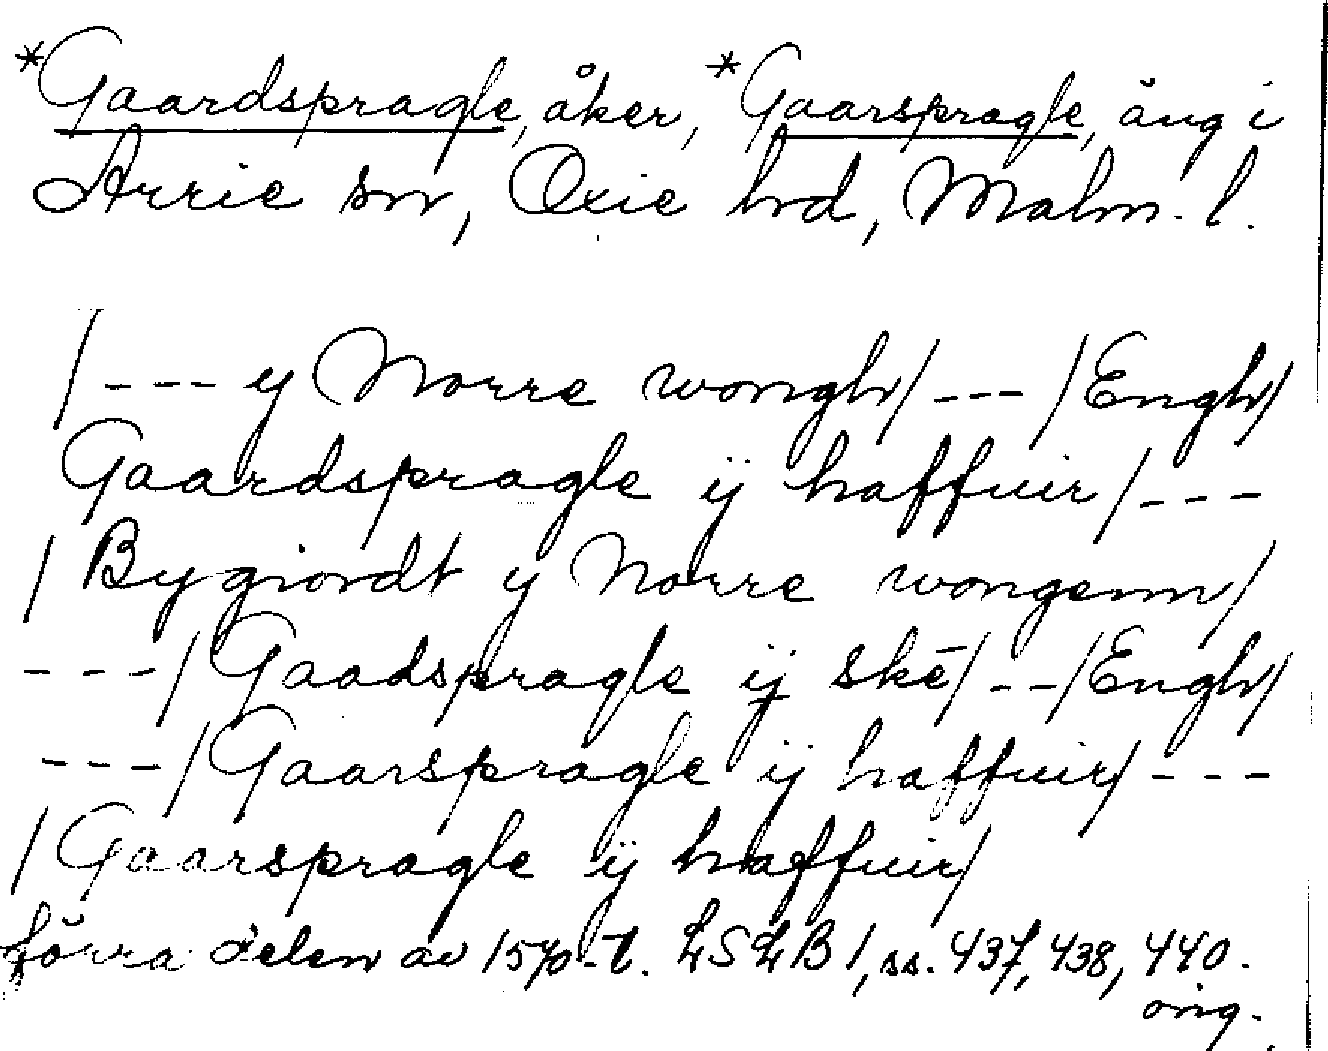 *Gaardspragle, åker, *Gaarspragle, äng i
Arrie sn, Oxie hd, Malm. l.
/--- y Norre wongh/ --- /Engh/
Gaardspragle ÿ haffuir/---
/Bygiordt y Norre wongenn/
---/Gaadspragle ÿ skē/--/Engh/
---/Gaarspragle ÿ haffuir/---
/Gaarspragle ÿ haffuir/
förra delen av 1570-t. LSLB 1, ss. 437, 438, 440.
orig.